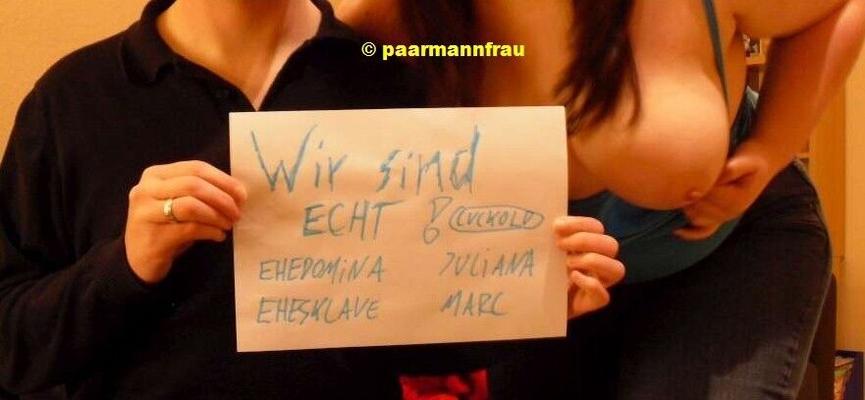 © paarmannfrau
Wir sind
ECHT ! CUCKOLD
EHEDOMINA JULIANA
EHESKLAVE MARC